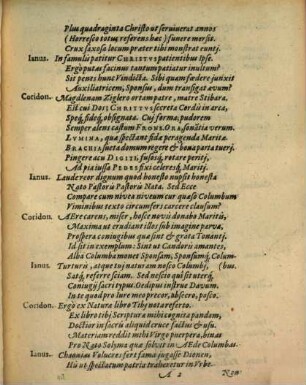 Plus quadraginta Christo ut seruierat annos
(Horresco totus referens hæc) funere mersit.
Crux saxosa locum præter tibi monstrat eunti.
Ianus. In famuli patitur CHRISTVS patientibus Ipse.
Ergo putas facinus tantum patiatur inultum?
Sit penes hunc Vindicta. Sibi quam fœdere iunxit
Auxiliatricem, Sponsus, dum transigat ævum?
Coridon. Magdlenam Ziglero ortam patre, matre Stibara.
Est cui Dos CHRISTVS secreta Cordi in arca,
Speq́, fideq́, obsignata. Cui forma: pudorem
Semper alens castum FRONS, ORA, sonātia verum.
LVMINA, quæ spectant fide peragenda Marita.
BRACHIA, sueta domum regere & bona parta tueri.
Pingere acu DIGITI, fusosq́, rotare periti,
Ad pia iussa PEDES
Ianus. Laude reor dignum quod honesto nupsit honesta
Nato Pastoris Pastoris Nata. Sed Ecce
Compare cum nivea niveum tur quasi Columbum
Viminibus textis circumfers carcere clausum?
Coridon. Ære carens, miser, hosce novis donabo Maritis,
Maxima ut creantur dici sub imagine parva,
Prospera coniugibus quæ sint & grata Tonanti.
Id sit in exemplum: Sint ut Candoris amantes,
Alba Columba monet Sponsam, Sponsumq́, Columbus.
Ianus. Turturis, atque tuj naturam nosco Columbj,
Satq́, referre sciam. Sed nescio quid sit uterq́,
Coniugij sacri typus: Oedipus instruat Davum.
In te quod pro iure meo precor, obsecro, posco.
Coridon. Ergo ex Naturæ libro Tibi vota referto.
Ex libro tibi Scriptura mihi cognita pandam,
Doctior in sacris aliquid cruce factus & usu.
Materiam reddit mihi Virgo puerpera, binas
Pro Nato Solyma quæ solvit in Æde Columbas.
Ianus. Chaonias Volucres fert fama jugasse Dienen,
Hii ut spectatum patria traheretur in Urbe.
A 2 Non